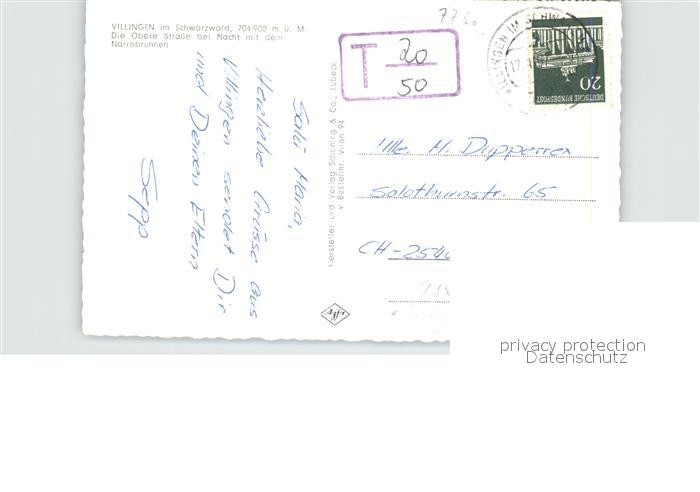 VILLINGEN im Schwarzwald, 704-900 m ü. M.
Die Obere Straße bei Nacht mit dem
Narrobrunnen
Salü Maria,
Herzliche Grüsse aus
Villingen sendet Dir
und Deinen Eltern
Sepp
Hersteller und Verlag Schöning & Co., Lübeck
Bestellnr. Vllen 94
T 20
50
VILLINGEN IM SCHW
20
DEUTSCHE BUNDESPOST
Mlle. M. Dupperrex
Solothurnstr. 65
CH-2540
privacy protection
Datenschutz